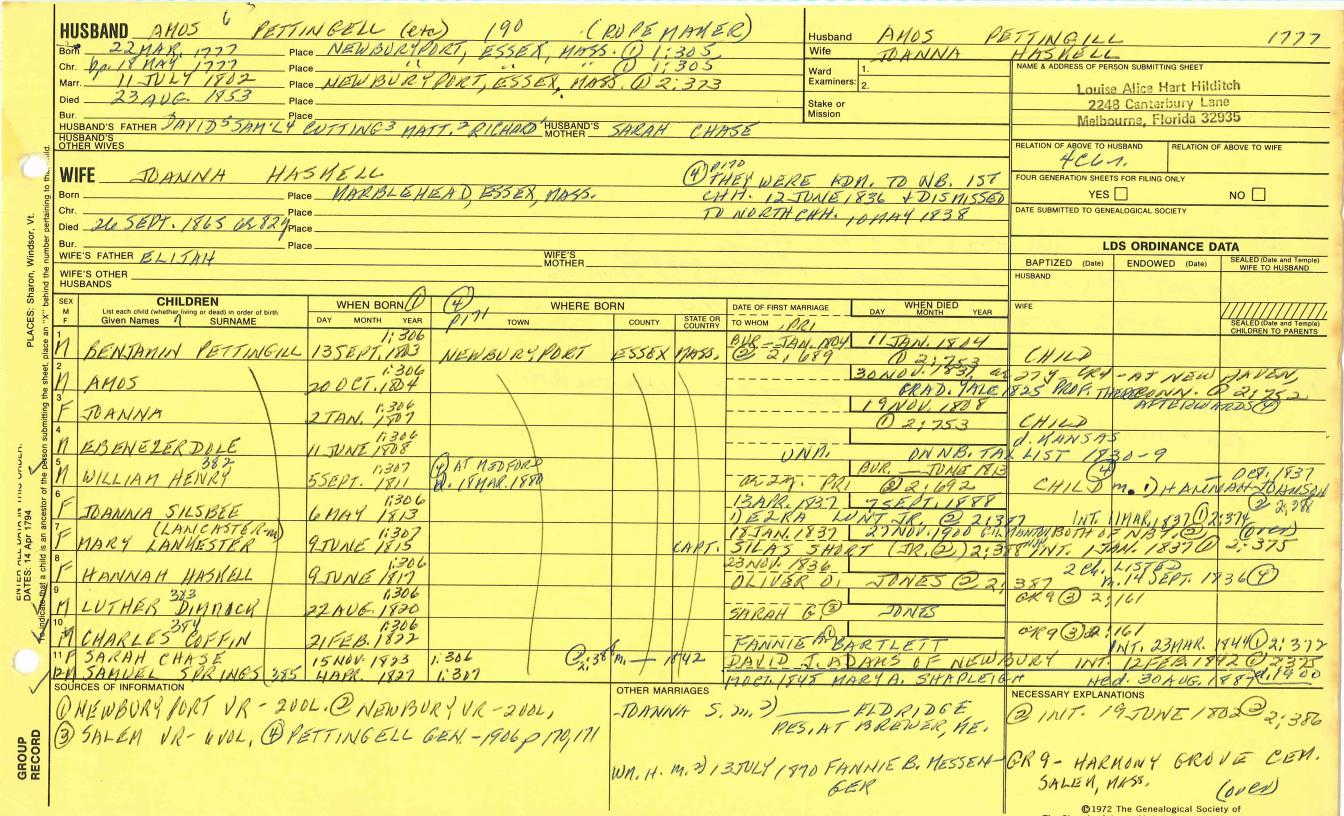 HUSBAND AMOS 6 PETTINGELL (etc) 190 (ROPE MAKER)
Born 22 MAR. 1777 Place NEWBURYPORT, ESSEX, MASS. ① 1:305
Chr. bp. 18 MAY 1777 Place " " " ① 1:305
Marr. 11 JULY 1802 Place NEWBURYPORT, ESSEX, MASS. ① 2:373
Died 23 AUG. 1853 Place
Bur. Place
HUSBAND'S FATHER DAVID5 SAM'L4 CUTTING3 MATT.2 RICHARD1 HUSBAND'S MOTHER SARAH CHASE
HUSBAND'S OTHER WIVES
Husband AMOS PETTINGILL 1777
Wife JOANNA HASKELL
Ward Examiners: 1. 2.
Stake or Mission
NAME & ADDRESS OF PERSON SUBMITTING SHEET
Louise Alice Hart Hilditch
2248 Canterbury Lane
Melbourne, Florida 32935
RELATION OF ABOVE TO HUSBAND RELATION OF ABOVE TO WIFE
FOUR GENERATION SHEETS FOR FILING ONLY
YES NO
DATE SUBMITTED TO GENEALOGICAL SOCIETY
WIFE JOANNA HASKELL
Born Place MARBLEHEAD, ESSEX, MASS.
Chr. Place
Died 26 SEPT. 1865 Place
Bur. Place
④ p170 THEY WERE ADM. TO NB. 1ST
CHH. 12 JUNE 1836 & DISMISSED
TO NORTH CHH. 10 MAY 1838
WIFE'S FATHER ELIJAH WIFE'S MOTHER
WIFE'S OTHER HUSBANDS
LDS ORDINANCE DATA
BAPTIZED (Date) ENDOWED (Date) SEALED (Date and Temple) WIFE TO HUSBAND
HUSBAND
WIFE
SEALED (Date and Temple) CHILDREN TO PARENTS
SEX M F
CHILDREN
List each child (whether living or dead) in order of birth
Given Names SURNAME
WHEN BORN ①
DAY MONTH YEAR
④ p171
WHERE BORN
TOWN COUNTY STATE OR COUNTRY
DATE OF FIRST MARRIAGE
TO WHOM
WHEN DIED
DAY MONTH YEAR
1 M BENJAMIN PETTINGILL 13 SEPT. 1803 1:306 NEWBURYPORT ESSEX MASS. BUR - JAN. 1804 ② 2:689 11 JAN. 1804 ① 2:753 CHILD
2 M AMOS 20 OCT. 1804 1:306 30 NOV. 1831, 27 y. - AT NEW HAVEN, CONN. ① 2:752
GRAD. YALE 1825 PROF. THERE AFTERWARDS ④
3 F JOANNA 2 JAN. 1807 1:306 19 NOV. 1808 ① 2:753 CHILD
4 M EBENEZER DOLE 11 JUNE 1808 1:306 UNM. d. KANSAS
ON NB. TAX LIST 1830-9
5 M WILLIAM HENRY 382 5 SEPT. 1811 1:307 ④ AT MEDFORD d. 18 MAR. 1880 BUR. — JUNE 1813 ② 2:692 CHILD ④ m. 1) HANNAH JOHNSON OCT. 1837 ② 2:388
6 F JOANNA SILSBEE 6 MAY 1813 1:306 13 APR. 1837 7 SEPT. 1888
1) EZRA LUNT JR. ② 2:387 INT. 11 MAR. 1837 ① 2:374
7 F MARY LANKESTER (LANCASTER-m) 9 JUNE 1815 1:307 18 JAN. 1837 27 NOV. 1900 BOTH OF NBY. ② (over)
CAPT. SILAS SHORT (JR. ②) 2:388 INT. 1 JAN. 1837 ① 2:375
8 F HANNAH HASKELL 9 JUNE 1817 1:306 23 NOV. 1836 2 Ch. LISTED
OLIVER O. JONES ② 2:387 m. 14 SEPT. 1836 ④
9 M LUTHER DIMMOCK 383 22 AUG. 1820 1:306 SARAH G ③ JONES GR9 ③ 2:161
10 M CHARLES COFFIN 384 21 FEB. 1822 1:306 FANNIE A. BARTLETT GR9 ③ 2:161
INT. 23 MAR. 1844 ① 2:372
11 F SARAH CHASE 15 NOV. 1823 1:306 m. — 1842 DAVID J. ADAMS OF NEWBURY INT. 12 FEB. 1842 ① 2:375
12 M SAMUEL SPRINGS 385 4 APR. 1827 1:307 OCT. 1848 MARY A. SHAPLEIGH 30 AUG. d. 1900
SOURCES OF INFORMATION
① NEWBURYPORT VR - 2VOL. ② NEWBURY VR - 2VOL,
③ SALEM VR - 6 VOL, ④ PETTINGELL GEN. - 1906 p 170,171
OTHER MARRIAGES
JOANNA S. m. 2) — ELDRIDGE
RES. AT BREWER, ME.
WM. H. m. 2) 13 JULY 1870 FANNIE B. MESSEN-
GER
NECESSARY EXPLANATIONS
② INT. 19 JUNE 1802 ② 2:386
GR9 - HARMONY GROVE CEM.
SALEM, MASS. (over)
©1972 The Genealogical Society of
PLACES: Sharon, Windsor, Vt.
ENTER ALL DATA IN THIS ORDER:
DATES: 14 Apr 1794
To indicate that a child is an ancestor of the person submitting the sheet, place an "X" behind the number pertaining to the child.
GROUP RECORD